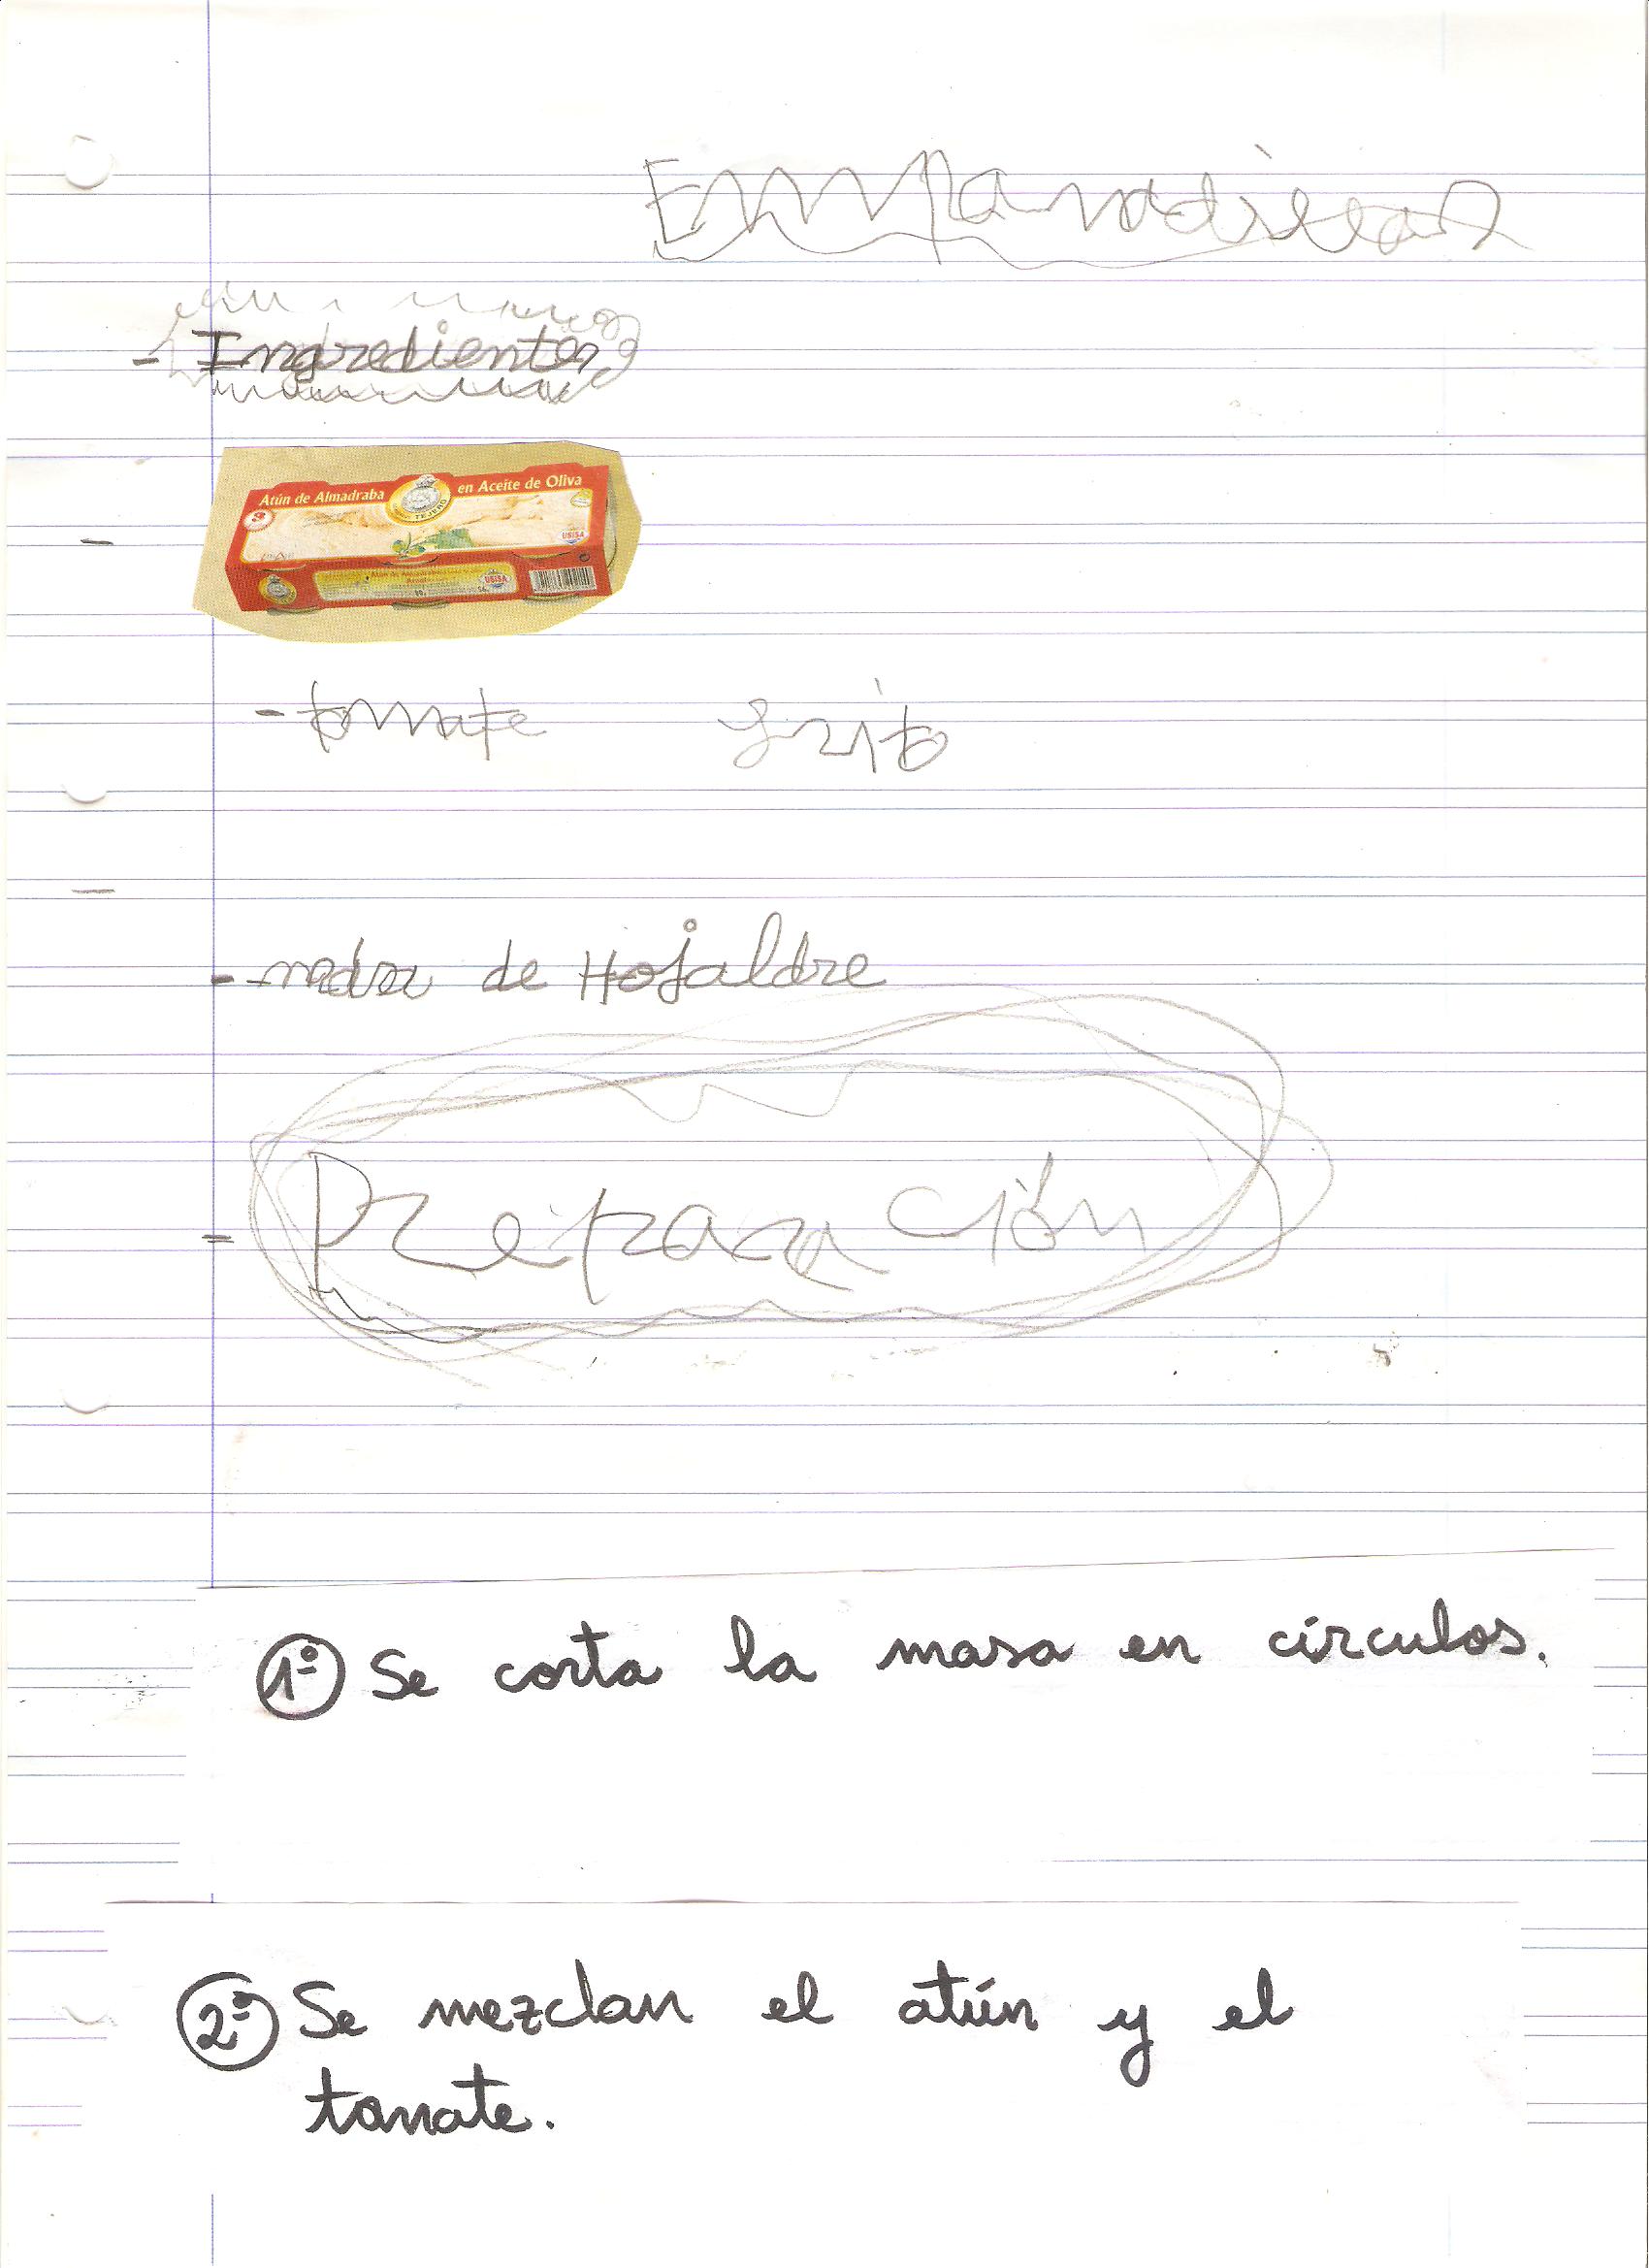 Empanadillas
- Ingredientes
Atún de Almadraba en Aceite de Oliva
TEJERO
3
USISA
USISA
- tomate frito
- de Hojaldre
= Preparación
1º Se corta la masa en círculos.
2º Se mezclan el atún y el
tomate.